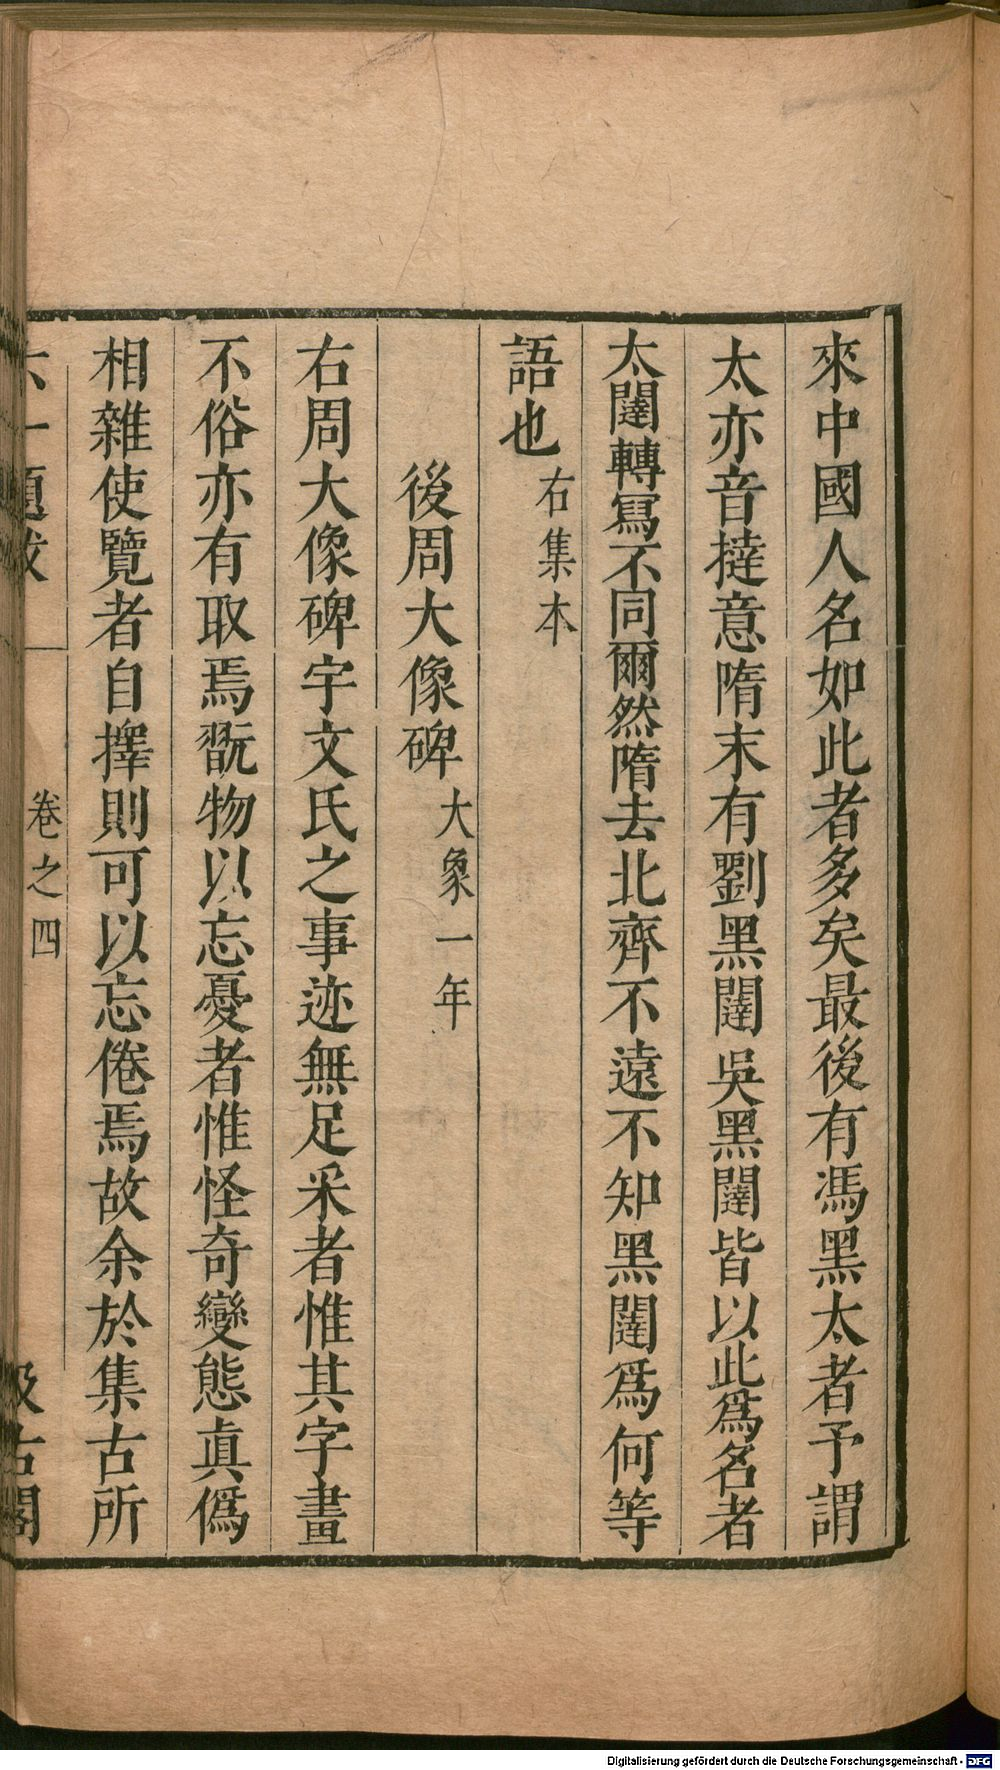 來中國人名如此者多矣最後有馮黑太者予謂
太亦音撻意隋末有劉黑闥吳黑闥皆以此爲名者
太闥轉寫不同爾然隋去北齊不遠不知黑闥爲何等
語也右集本
後周大像碑大象一年
右周大像碑宇文氏之事迹無足采者惟其字畫
不俗亦有取焉翫物以忘憂者惟怪奇變態眞僞
相雜使覽者自擇則可以忘倦焉故余於集古所
六一題跋 卷之四 汲古閣
Digitalisierung gefördert durch die Deutsche Forschungsgemeinschaft - DFG